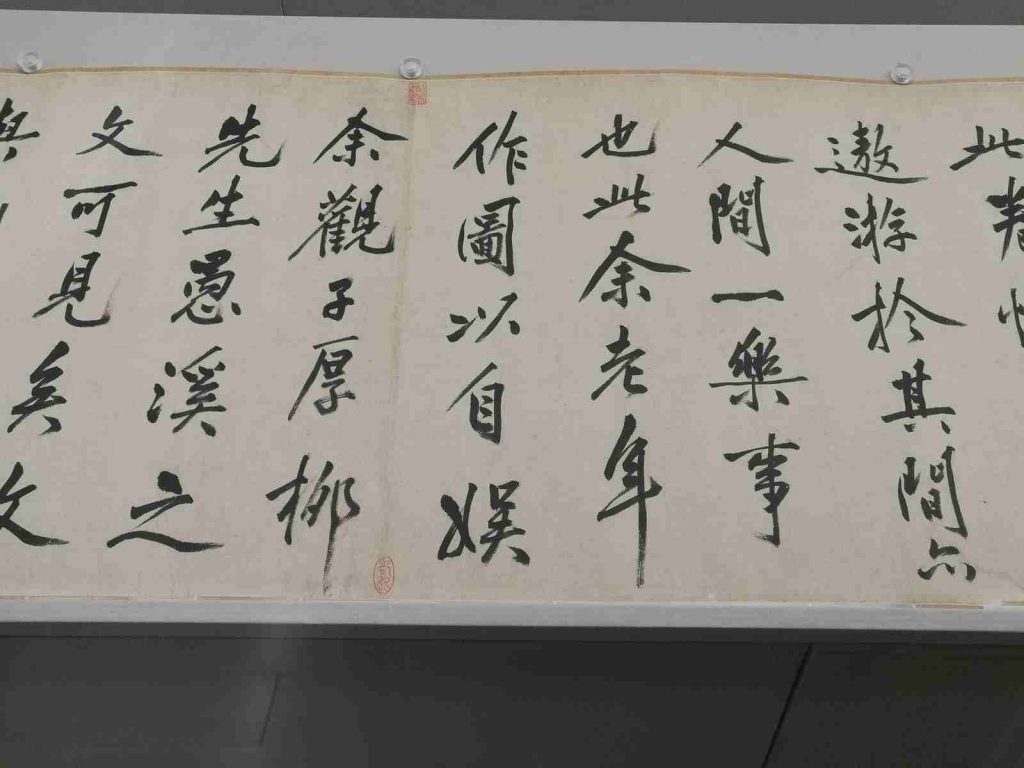 此
遨游於其間亦
人間一樂事
也此余老年
作圖以自娛
余觀子厚柳
先生愚溪之
文可見矣文